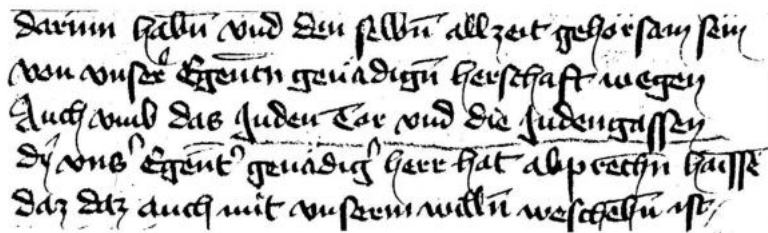 darumm habn̄ vnd den selbn̄ allzeit gehorsam sein
von vnser Egen̄tn genadign̄ herschaft wegen
Auch vmb das Juden Tor vnd die Judengassen
dy vns Egen̄t genadig herr hat abprechn̄ haisse
daz daz auch mit vnserm willn̄ weschehn̄ ist